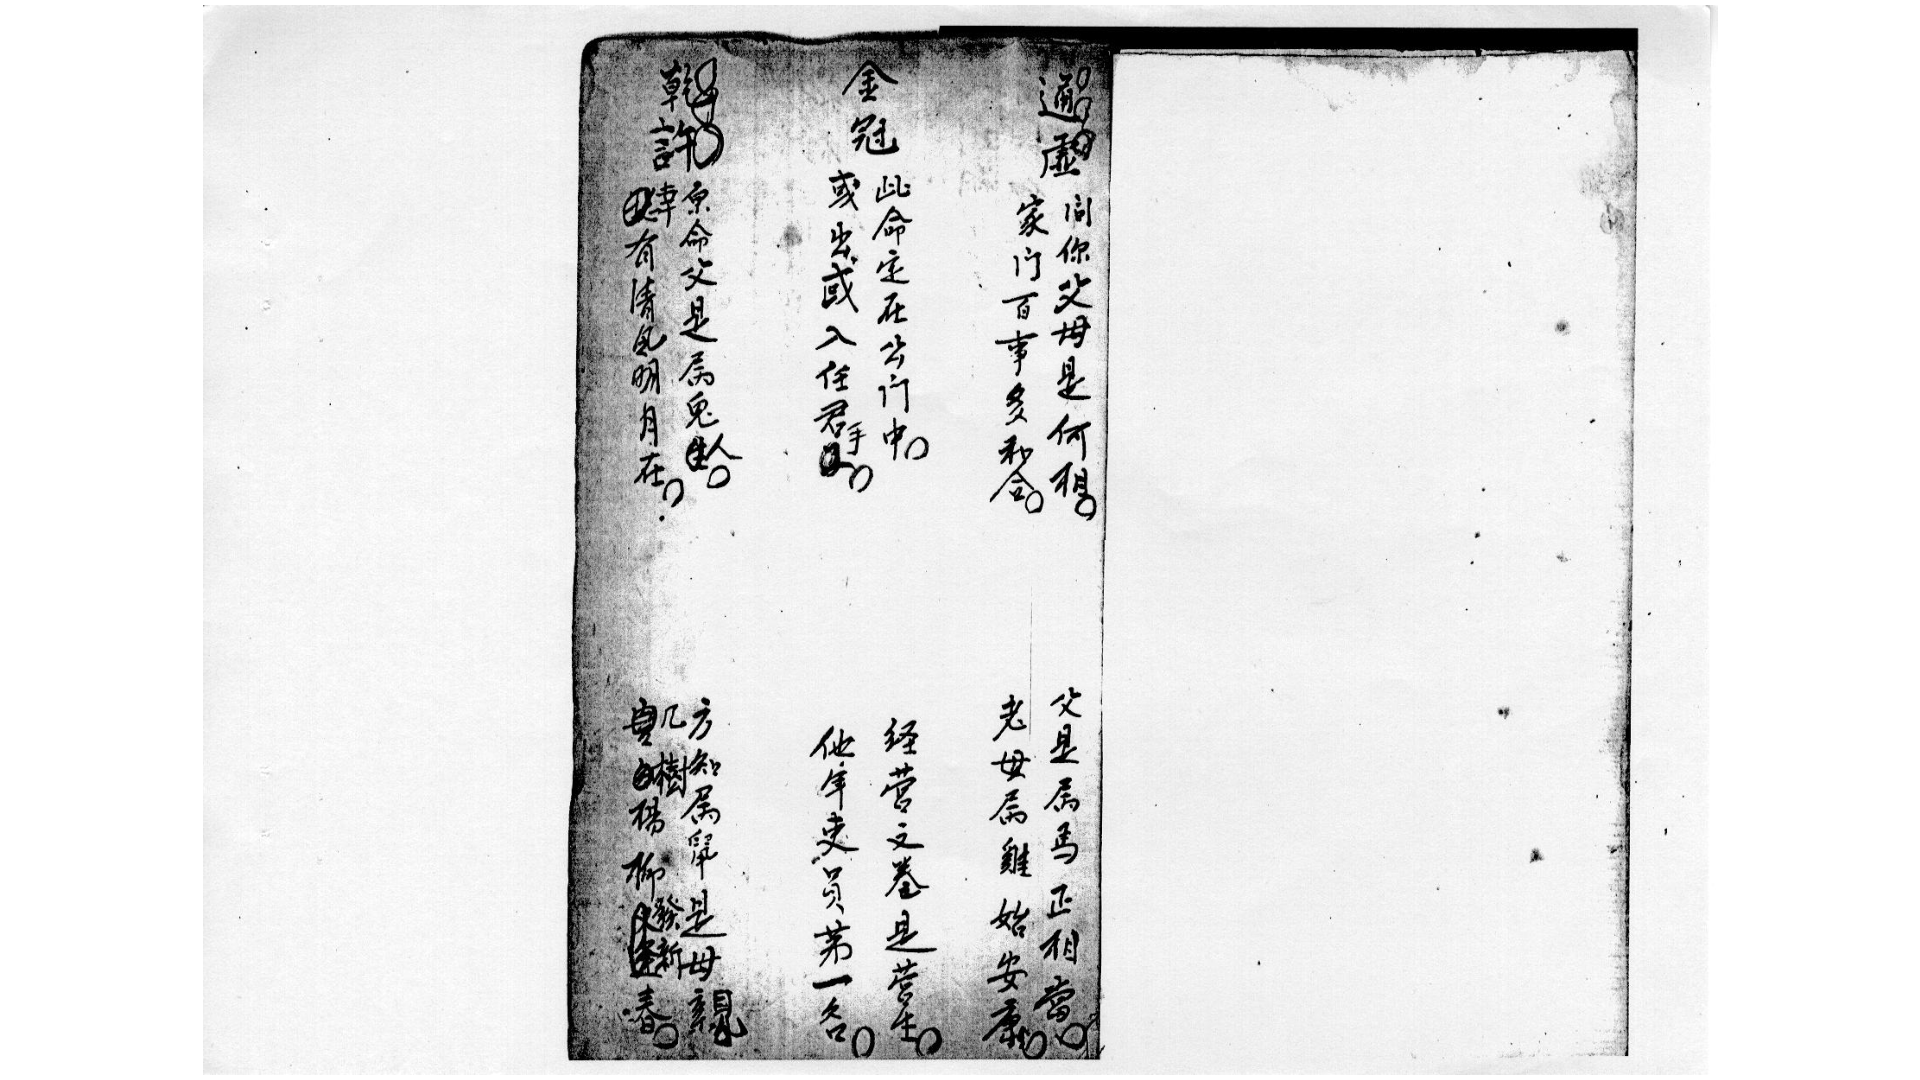 通虛
问你父母是何相
父是属馬正相當
家门百事多和合
老母属雞始安康
金冠
此命定在公门中
经营文卷是营生
或出或入任君手
他年吏员第一名
乾許
原命父是属兎人
方知属鼠是母親
幸有清风明月在
几樹楊柳發新春